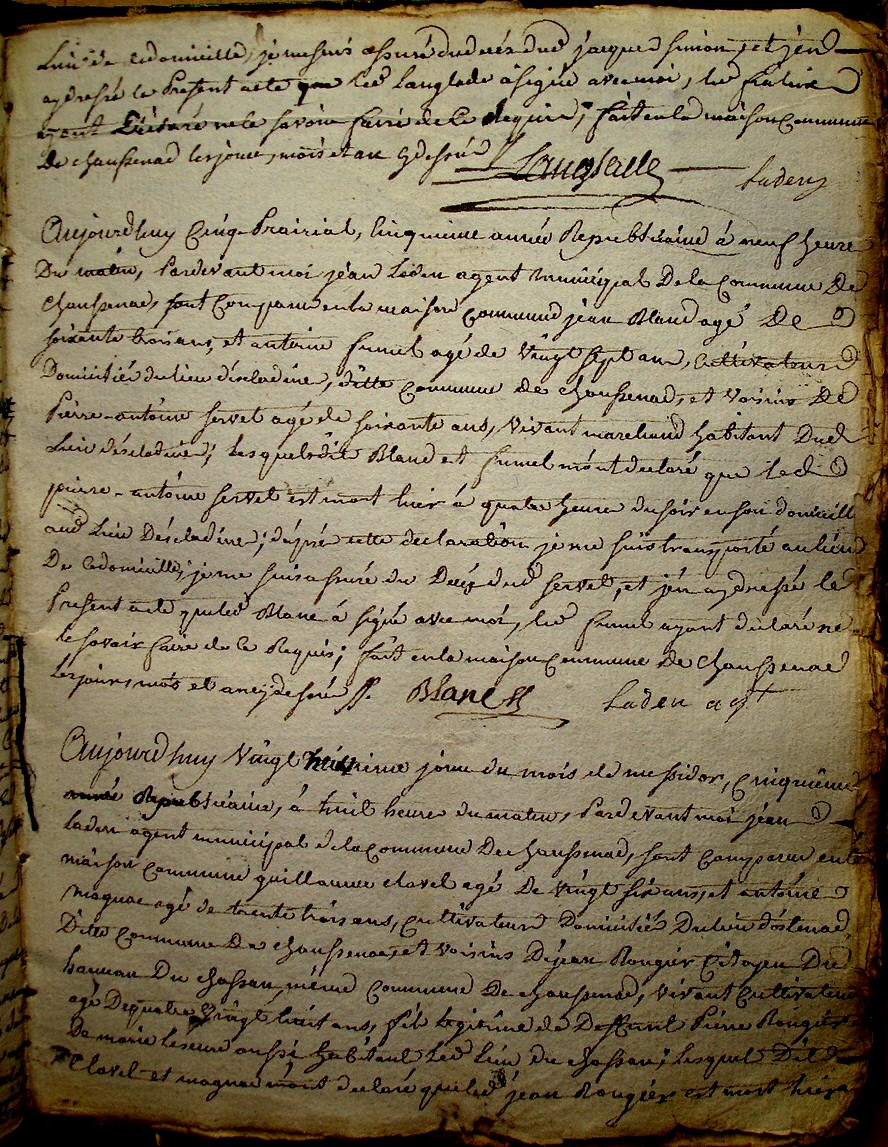 lieu de ce domicille, je me suis assuré du décés dud jacques simon, et j'én
ay dressé le Present acte que led Langlade a signé avec moi, led
ayant déclaré ne le savoir faire de ce Requis; fait en la maison Commune
De chaussenac les jour, mois et an cy dessus
Langlade Laden
Aujourd'huy Cinq Prairial, Cinquieme année Republicaine á neuf heure
Du matin, Pardevant moi jéan Laden agent municipal De la Commune De
chaussenac, sont Comparus en la maison Commune jéan Blanc agé De
soixante trois ans, et antoine funel agé de Vingt sept ans, Cultivateurs
Domiciliés du lieu déscladine, ditte Commune de chaussenac, et Voisins De
Piérre-antoine servet agé de soixante ans, vivant marchand habitant Dud
Lieu déscladine; Lesquels dits Blanc et funel m'ont declaré que led
piérre-antoine servet est mort hier á quatre heures du soir en son domicille
aud Lieu Déscladine; d'aprés cette declaration je me suis transporté au lieu
De ce domicille, je me suis assuré du Décés dud servet, et j'én ay dressé le
Present acte que led Blanc á signé avec moi, led funel ayant déclaré ne
le savoir faire de ce Requis; fait en la maison Commune De chaussenac
les jour, mois et an cy dessus Blanc Laden agt
Aujourd'huy Vingt huitieme jour du mois de messidor, Cinquieme
année Republicaine, á huit heures du matin, Pardevant moi jéan
Laden agent municipal de la Commune De chaussenac, sont Comparus en la
maison Commune guillaume clavel agé De Vingt six ans, et antoine
magnac agé de trente trois ans, Cultivateurs Domiciliés Du lieu d'ostenac,
Ditte Commune De chaussenac, et voisins De jéan Rougier Citoyen Du
hameau Du chassan, même Commune De chaussenac, vivant Cultivateur
agé De quatre Vingt huit ans, fils legitime de Deffunt Piérre Rougier
De marie Leseure aussi habitant Led Lieu du chassan; Lesquels Dits
Clavel et magnac m'ont declaré que led jéan Rougier est mort hier